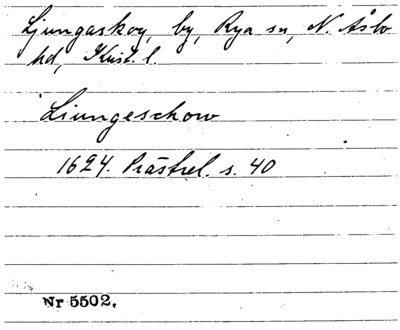 Ljungaskog, by, Rya sn, N. Åsbo
hd, Krist. l.
Liungeschow
1624. Prästrel. s. 40
Nr 5502.